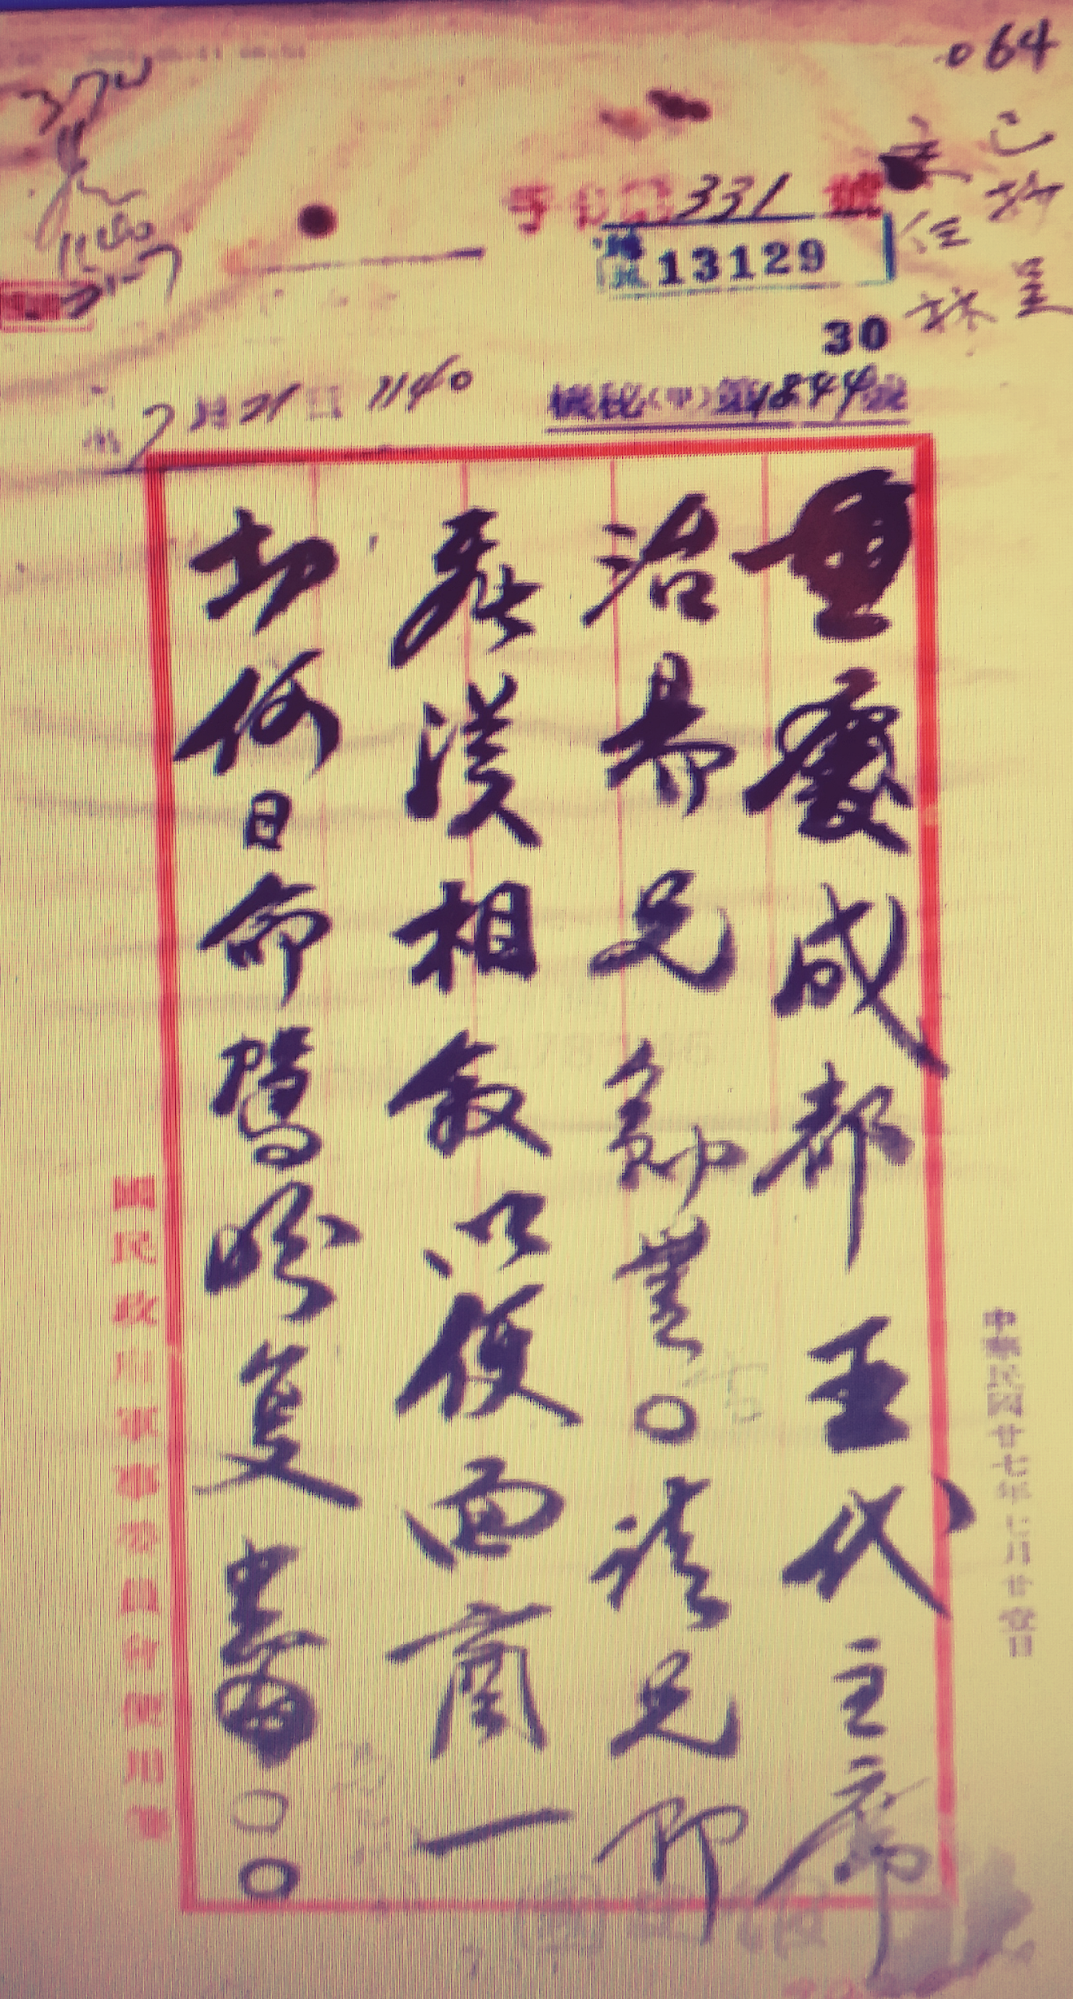 064
已抄呈
主任林
331 號
13129
30
機秘(甲)第1844號
7月21日 1140
中華民國廿七年七月廿壹日
重慶成都王代主席
治易兄勛鑒○請兄即
飛漢相敘以便面商一
切何日命駕盼復 ○○
國民政府軍事委員會便用箋
國史館